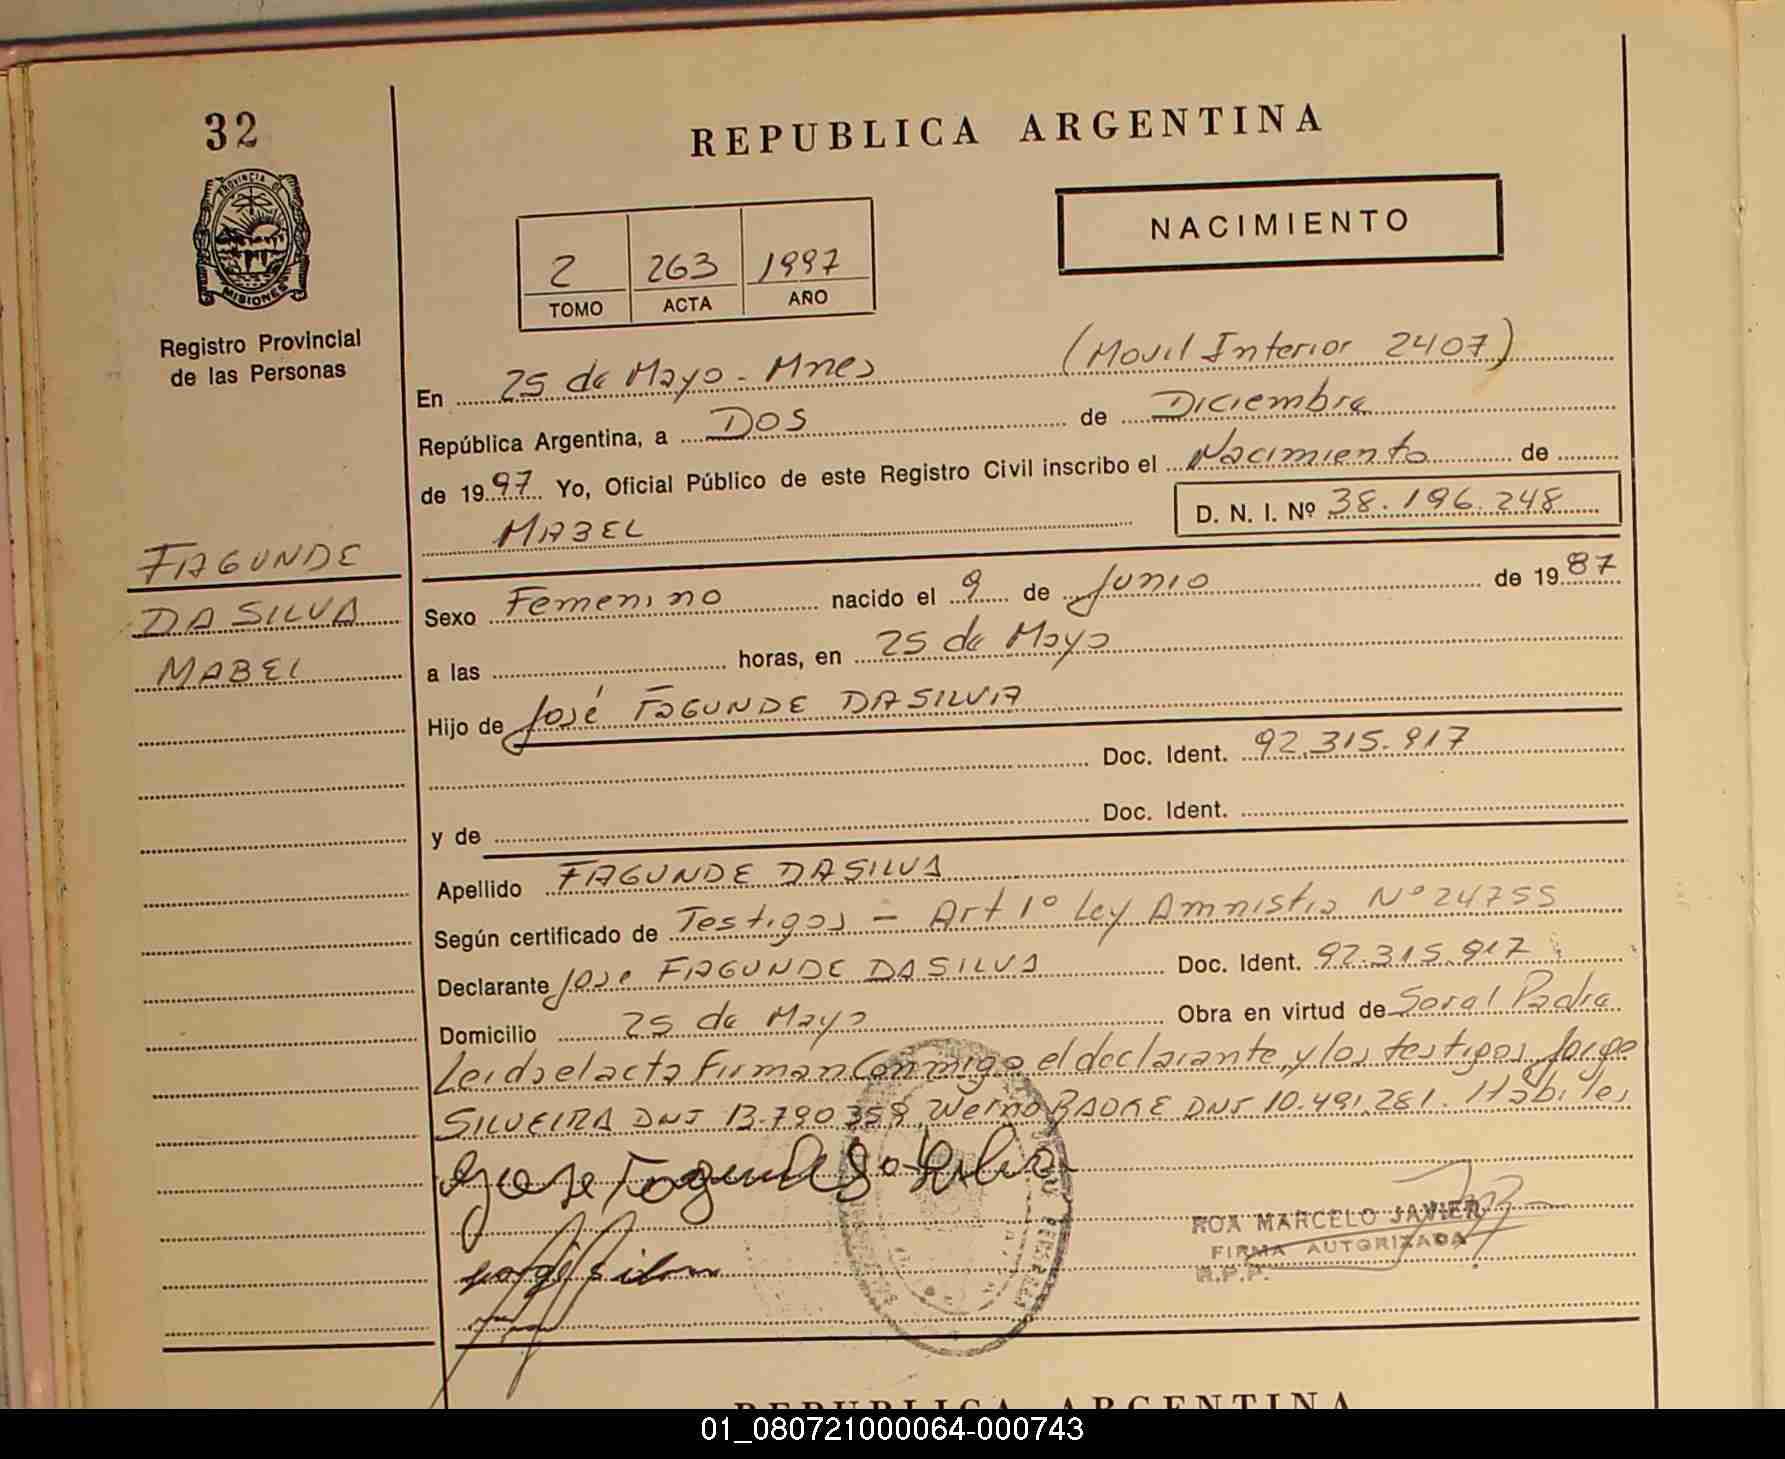 32
REPUBLICA ARGENTINA
PROVINCIA DE
MISIONES
Registro Provincial
de las Personas
2 263 1997
TOMO ACTA AÑO
NACIMIENTO
En 25 de Mayo - Mnes (Movil Interior 2407)
República Argentina, a Dos de Diciembre
de 1997 Yo, Oficial Público de este Registro Civil inscribo el Nacimiento de
MABEL D. N. I. Nº 38.196.248
FAGUNDE
DA SILVA
MABEL
Sexo Femenino nacido el 9 de Junio de 1987
a las horas, en 25 de Mayo
Hijo de José FAGUNDE DA SILVA
Doc. Ident. 92.315.917
y de Doc. Ident.
Apellido FAGUNDE DA SILVA
Según certificado de Testigos - Art 1º Ley Amnistia Nº 24755
Declarante Jose FAGUNDE DA SILVA Doc. Ident. 92.315.917
Domicilio 25 de Mayo Obra en virtud de Padre
Leida el acta Firman Conmigo el declarante, y los testigos Jorge
SILVEIRA DNI 13.790.359, Werno DNI 10.491.281. Habiles
Jose Fagundes da Silva
ROA MARCELO JAVIER
FIRMA AUTORIZADA
R.P.P.
REPUBLICA ARGENTINA
01_080721000064-000743